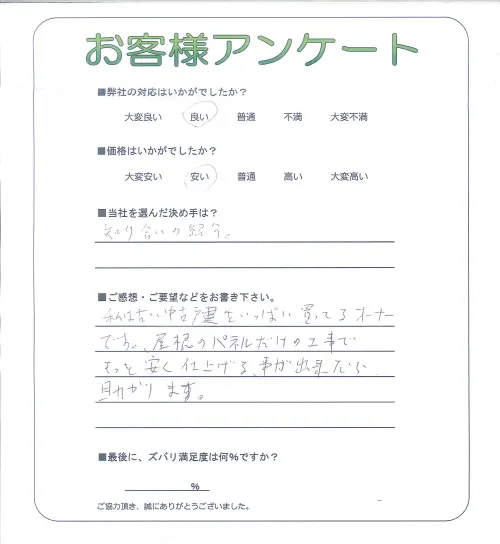 お客様アンケート
■弊社の対応はいかがでしたか？
大変良い 良い 普通 不満 大変不満
■価格はいかがでしたか？
大変安い 安い 普通 高い 大変高い
■当社を選んだ決め手は？
知り合いの紹介。
■ご感想・ご要望などをお書き下さい。
私は古い中古戸建をいっぱい買ってるオーナー
です。屋根のパネルだけの工事で
もっと安く仕上げる事が出来たら
助かります。
■最後に、ズバリ満足度は何%ですか？
%
ご協力頂き、誠にありがとうございました。